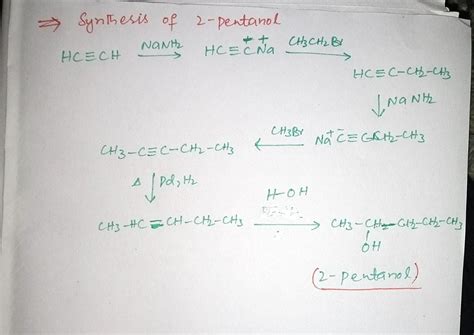 ⇒ Synthesis of 2-pentanol
HC≡CH NaNH₂ → HC≡C̄Na⁺ CH₃CH₂Br →
HC≡C-CH₂-CH₃
↓ NaNH₂
CH₃-C≡C-CH₂-CH₃ ← CH₃Br Na⁺C̄≡C-CH₂-CH₃
Δ ↓ Pd, H₂
CH₃-HC=CH-CH₂-CH₃ H-OH → CH₃-CH-CH₂-CH₂-CH₃
OH
(2-pentanol)